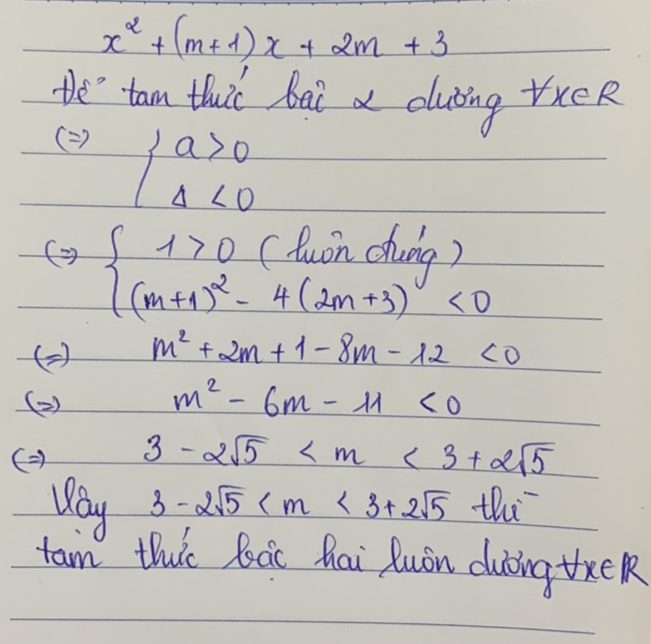 x² + (m+1)x + 2m + 3
Để tam thức bậc 2 dương ∀x∈R
(=) { a > 0
Δ < 0
(=) { 1 > 0 (luôn đúng)
(m+1)² - 4(2m+3) < 0
(=) m² + 2m + 1 - 8m - 12 < 0
(=) m² - 6m - 11 < 0
(=) 3 - 2√5 < m < 3 + 2√5
Vậy 3 - 2√5 < m < 3 + 2√5 thì
tam thức bậc hai luôn dương ∀x∈R